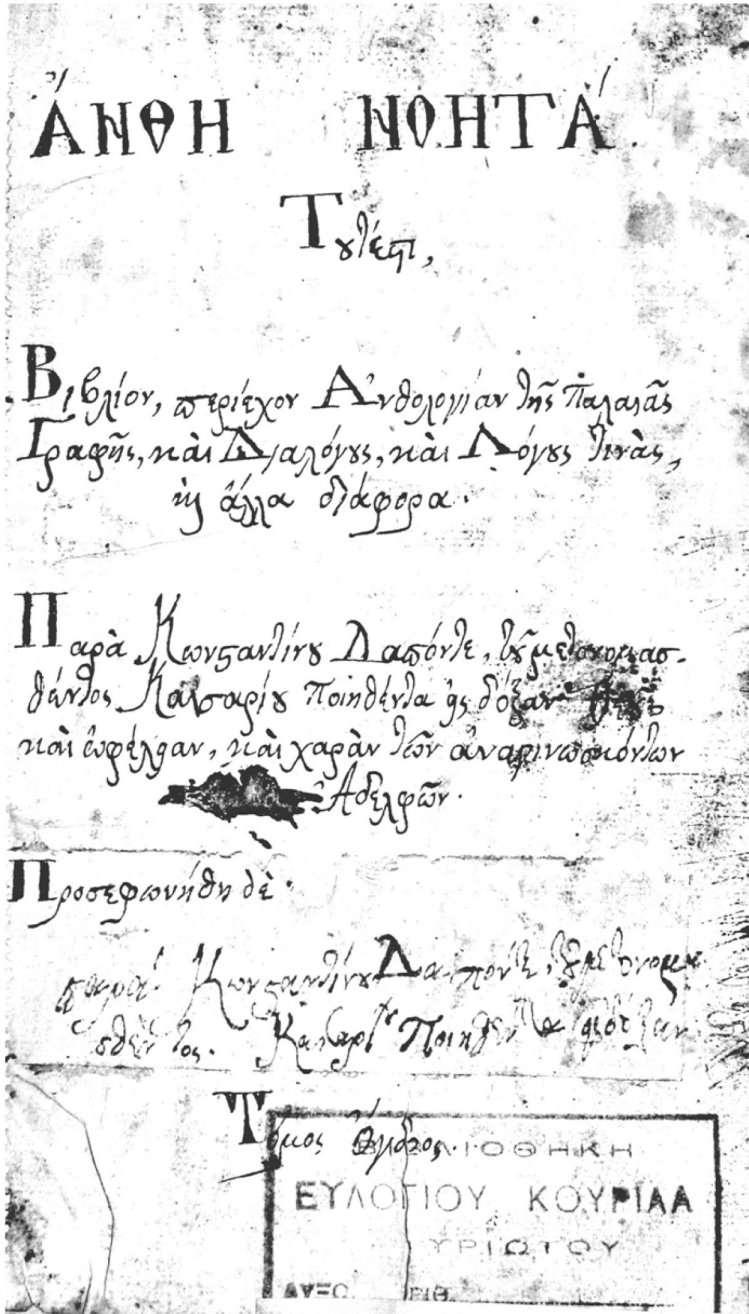 ἌΝΘΗ ΝΟΗΤΆ
Τουτέστι,
Βιβλίον, περιέχον Ἀνθολογίαν τῆς Παλαιᾶς
Γραφῆς, καὶ Διαλόγους, καὶ Λόγους τινὰς,
καὶ ἄλλα διάφορα.
Παρὰ Κωνσταντίνου Δαπόντε, τοῦ μετονομασ-
θέντος Καισαρίου Ποιηθέντα εἰς δόξαν Θεοῦ
καὶ ὠφέλειαν, καὶ χαρὰν τῶν ἀναγινωσκόντων
Ἀδελφῶν.
Προσεφωνήθη δὲ.
παρὰ Κωνσταντίνου Δαπόντε, τοῦ μετονομα
σθέντος. Καισαρίου Ποιηθέντα εἰς δόξαν
Τόμος Ὄγδοος.
ΒΙΒΛΙΟΘΗΚΗ
ΕΥΛΟΓΙΟΥ ΚΟΥΡΙΛΑ
ΥΡΙΩΤΟΥ
ΑΥΞΩ ΡΙΘ.